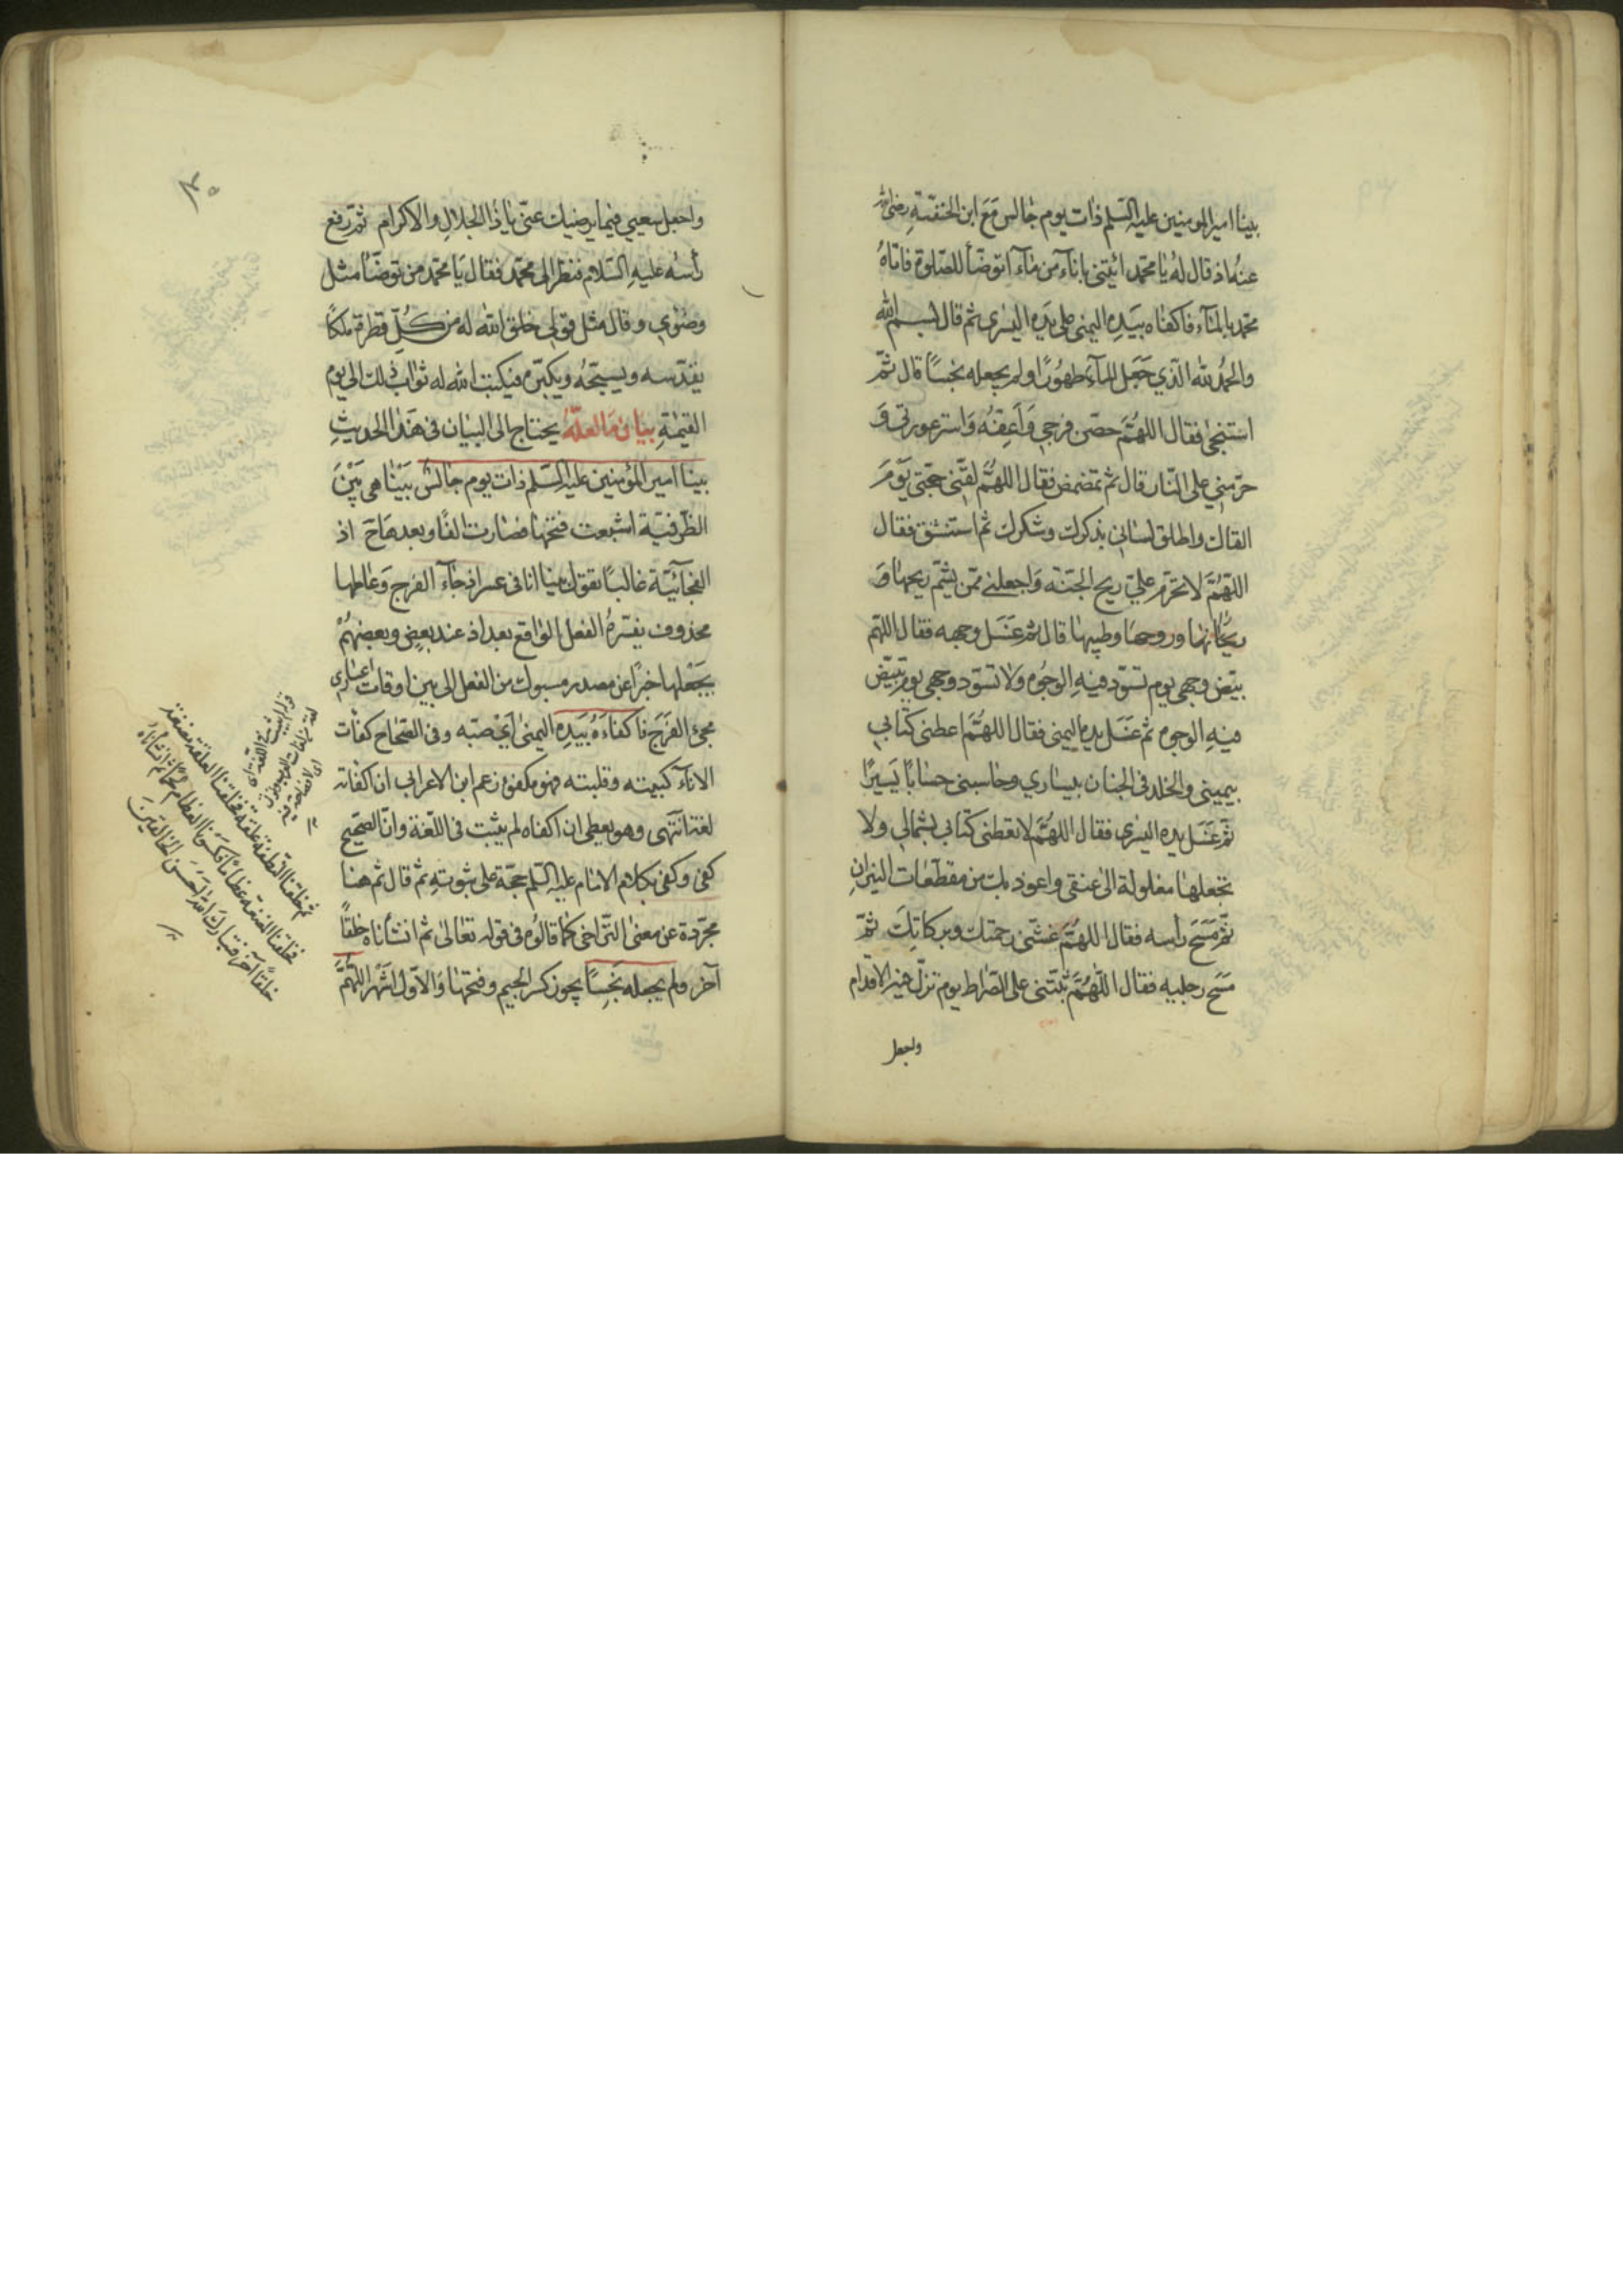 بينا امير المومنين عليه السلم ذات يوم جالس مَعَ ابن الحنفيّةِ رضى الله
عنهُ اذ قال لهُ يا محمّد ائيتنى بانآءٍ من مآءٍ اتوضّأ للصّلوة فاتاهُ
محمّد بالمآء فاكفاه بيَدِه اليمنى على يَدِه اليسرى ثم قال بسم الله
والحمدُ لله الّذي جَعَل المآءَ طهُورًا ولم يجعله نجسًا قال ثمّ
استنجى فقال اللهُمَّ حصّن فرجي وَاَعِفّهُ وَاسترعورتى وَ
حرّمنى على النّار قال ثم تمضمض فقال اللهُمَّ لقّنى حجّتى يَوْمَ
القاك واطلق لسانى بذكرك وشكرك ثم استنشق فقال
اللهُمَّ لا تحرّم عليّ ريح الجنّة وَاجعلنى ممّن يشمّ ريحها وَ
ريحانها وروحها وطيبها قال ثم غسَل وجهه فقال اللهم
بيّض وجهى يوم تسوّد فيهِ الوجُوه وَلا تسوّد وجهى يوم تبيّض
فيهِ الوجوه ثم غسَل يده اليمنى فقال اللهُمَّ اعطنى كتابي
بيمينى والخلد فى الجنان بيساري وحاسبنى حسابًا يَسيرًا
ثم غسَل يده اليسرى فقال اللهُمَّ لا تعطنى كتابى بشمالى ولا
تجعلها مغلولة الى عنقى واعوذ بك من مقطّعات النيرانِ
ثم مَسَحَ رأسه فقال اللهُمَّ غشّنى رحمتك وبركاتِكَ ثمّ
مسَح رجليه فقال اللّهُمَّ ثبّتنى على الصّراط يوم تزلّ فيه الاقدام
واجعل
واجعل سعيي فيما يرضيك عنّى يا ذا الجلالِ والاكرام ثمّ رفع
رأسَه عليهِ السّلام فنظر الى محمّد فقال يَا محمّد من توضّأ مثل
وضوئى وقال مثل قولى خلق الله له من كُلّ قطرة ملكًا
يقدّسه ويسبّحُه ويكبّره فيكتب الله له ثواب ذلك الى يوم
القيمةِ بيان مَا لعلّهُ يحتاج الى البيان فى هذا الحديثِ
بينا امير المؤمنين عليه السّلم ذات يوم جالسٌ بَيْنا هى بَيْنَ
الظّرفيّة اشبعت فتحتها فصارت الفًا وبعدهاحَ اذ
الفجائيّة غالبًا تقول بينا انا فى عسر اذ جآء الفرج وَعاملها
محذوف يفسّرهُ الفعل الواقع بعد اذ عند بعضٍ وبعضهُمْ
يَجْعَلها خبرًا عن مصدر مسبوك من الفعل اى بين اوقات اعسارى
مجئ الفَرَج فاكفاءَهُ بَيَدِه اليمنى اَيْ صبّه وفى الصّحاح كفأت
الانآءَ كببته وقلبته فهو مكفوّ وزعم ابن الاعرابى ان اكفاته
لغة انتهى وهو يعطى ان اكفاه لم يثبت فى اللّغة وانّ الصّحيح
كفى وكفى بكلام الامام عليه السّلم حجّة على ثبوتهِ ثم قال ثم هنا
مجرّدة عن معنى التّراخى كما قالُوه فى قوله تعالى ثم انشأناه خلقًا
آخر ولم يجعله نَجِسًا يجوز كسر الجيم وفتحها وَالاوّل اشهر اللّهُمَّ
ثم خلقنا النّطفة علقة فخلقنا العلقة مضغة
فخلقنا المضغة عظامًا فكسونا العظام لحمًا ثم انشأناهُ
خلقًا آخر فتبارك الله احسن الخالقين